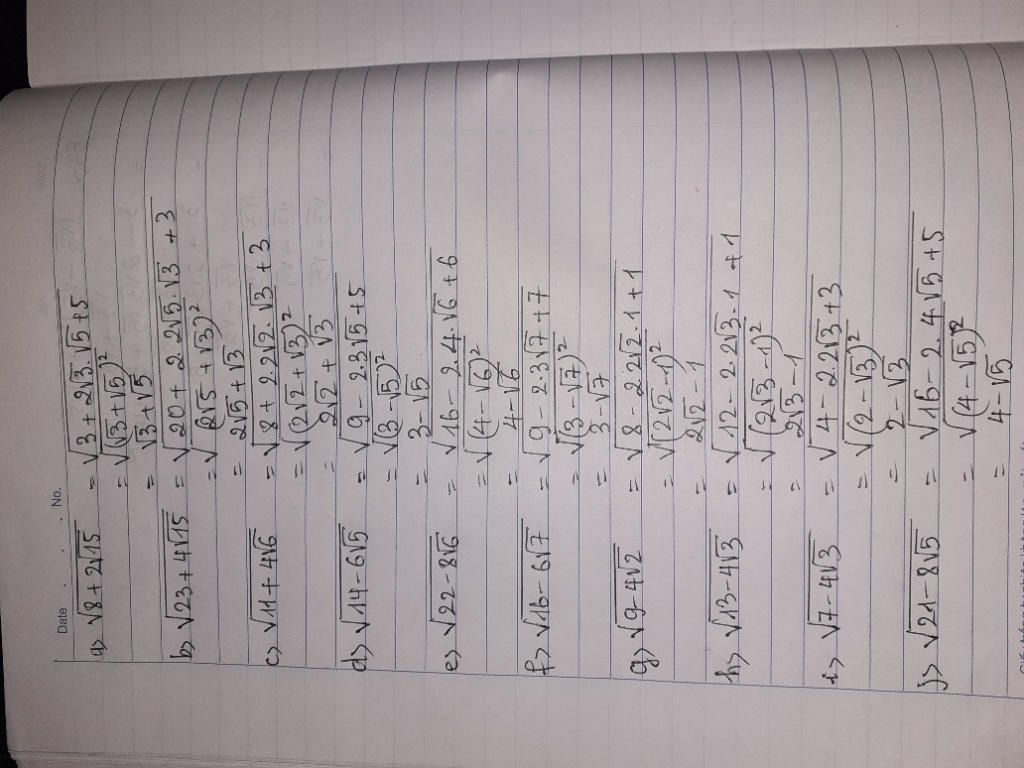 Date . . . No.
a> √(8+2√15) = √(3+2√3.√5+5)
= √((√3+√5)²)
= √3+√5
b> √(23+4√15) = √(20+2.2√5.√3+3)
= √((2√5+√3)²)
= 2√5+√3
c> √(11+4√6) = √(8+2.2√2.√3+3)
= √((2√2+√3)²)
= 2√2+√3
d> √(14-6√5) = √(9-2.3√5+5)
= √((3-√5)²)
= 3-√5
e> √(22-8√6) = √(16-2.4.√6+6)
= √((4-√6)²)
= 4-√6
f> √(16-6√7) = √(9-2.3√7+7)
= √((3-√7)²)
= 3-√7
g> √(9-4√2) = √(8-2.2√2.1+1)
= √((2√2-1)²)
= 2√2-1
h> √(13-4√3) = √(12-2.2√3.1+1)
= √((2√3-1)²)
= 2√3-1
i> √(7-4√3) = √(4-2.2√3+3)
= √((2-√3)²)
= 2-√3
j> √(21-8√5) = √(16-2.4√5+5)
= √((4-√5)²)
= 4-√5